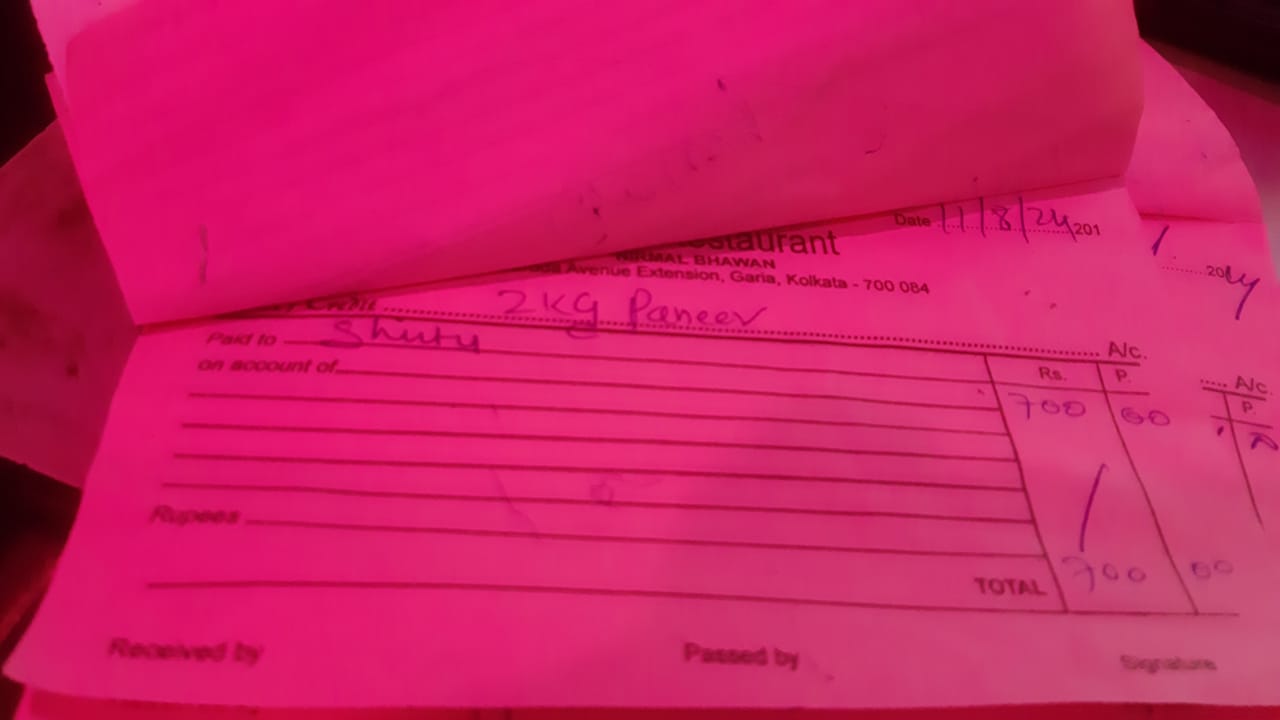 Date 11/8/24 201
Restaurant
NIRMAL BHAWAN
Avenue Extension, Garia, Kolkata - 700 084
Credit 2kg Paneer A/c.
Paid to
on account of
Rs. P.
700 00
Rupees
TOTAL 700 00
Received by Passed by Signature
A/c.
P.